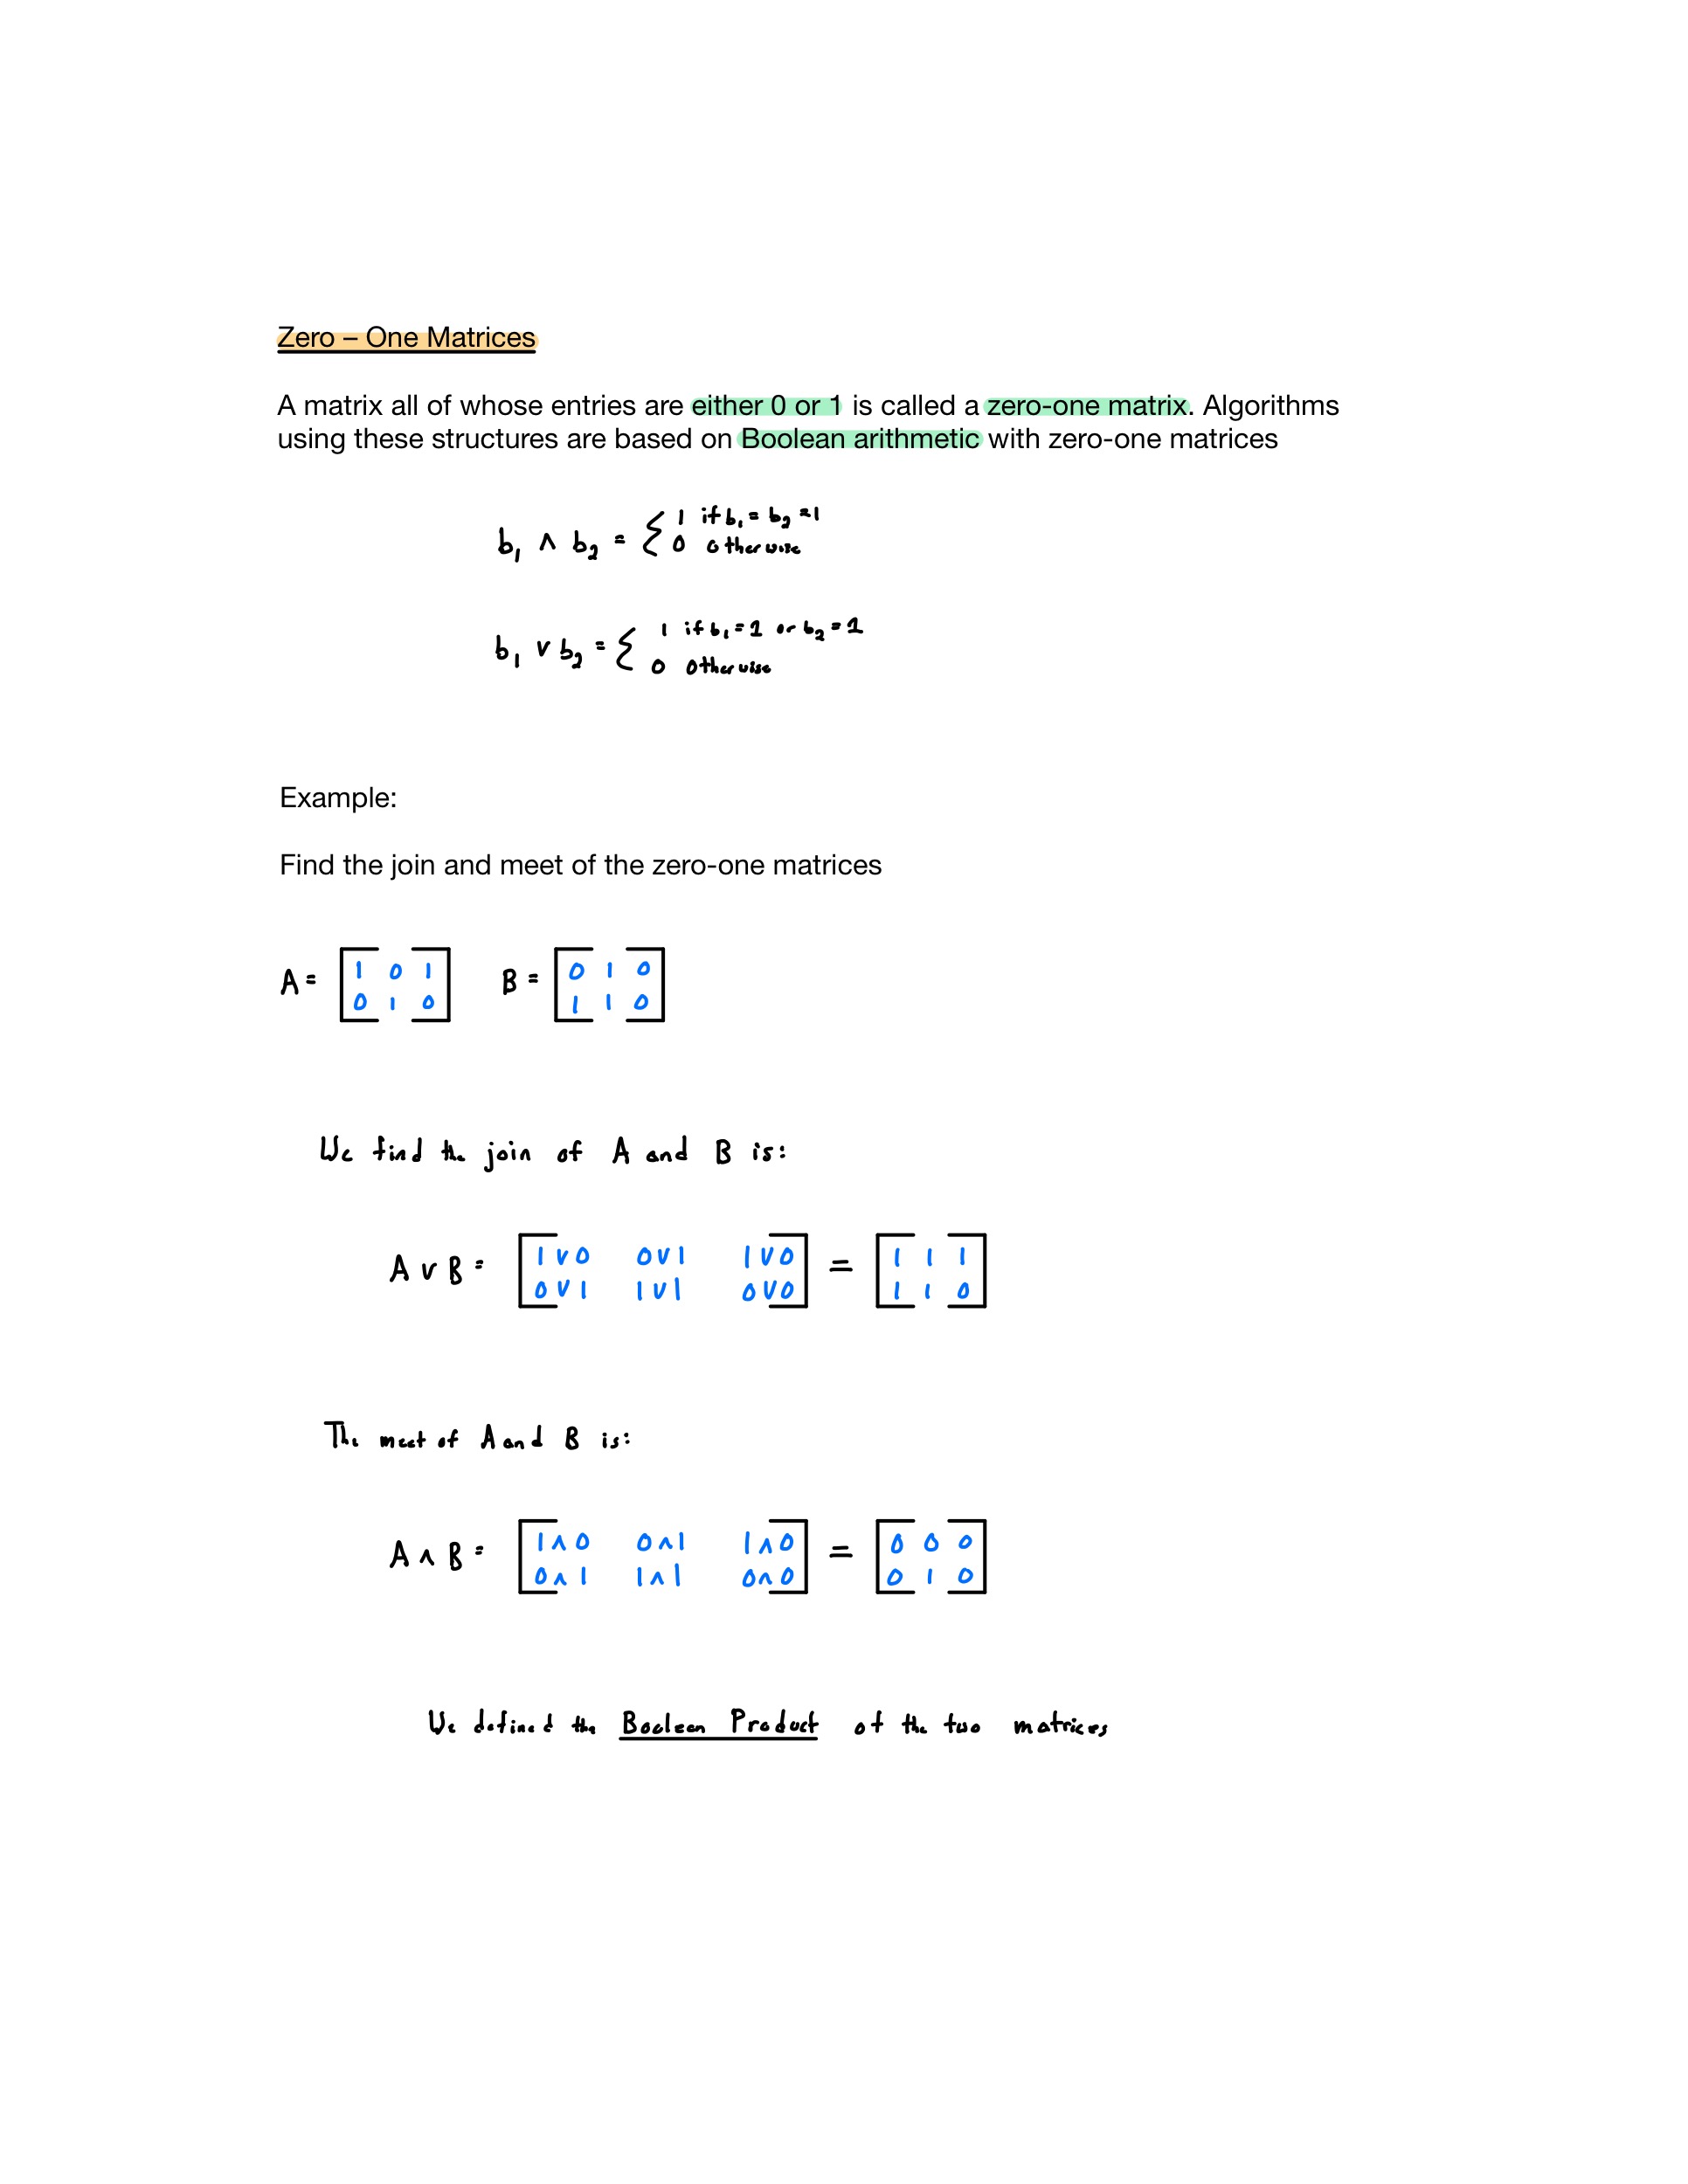 Zero – One Matrices
A matrix all of whose entries are either 0 or 1 is called a zero-one matrix. Algorithms
using these structures are based on Boolean arithmetic with zero-one matrices
b₁ ∧ b₂ = { 1 if b₁ = b₂ = 1
0 otherwise
b₁ ∨ b₂ = { 1 if b₁ = 1 or b₂ = 1
0 otherwise
Example:
Find the join and meet of the zero-one matrices
A = [ 1 0 1 B = [ 0 1 0
0 1 0 ] 1 1 0 ]
We find the join of A and B is:
A ∨ B = [ 1∨0 0∨1 1∨0 = [ 1 1 1
0∨1 1∨1 0∨0 ] 1 1 0 ]
The meet of A and B is:
A ∧ B = [ 1∧0 0∧1 1∧0 = [ 0 0 0
0∧1 1∧1 0∧0 ] 0 1 0 ]
We defined the Boolean Product of the two matrices